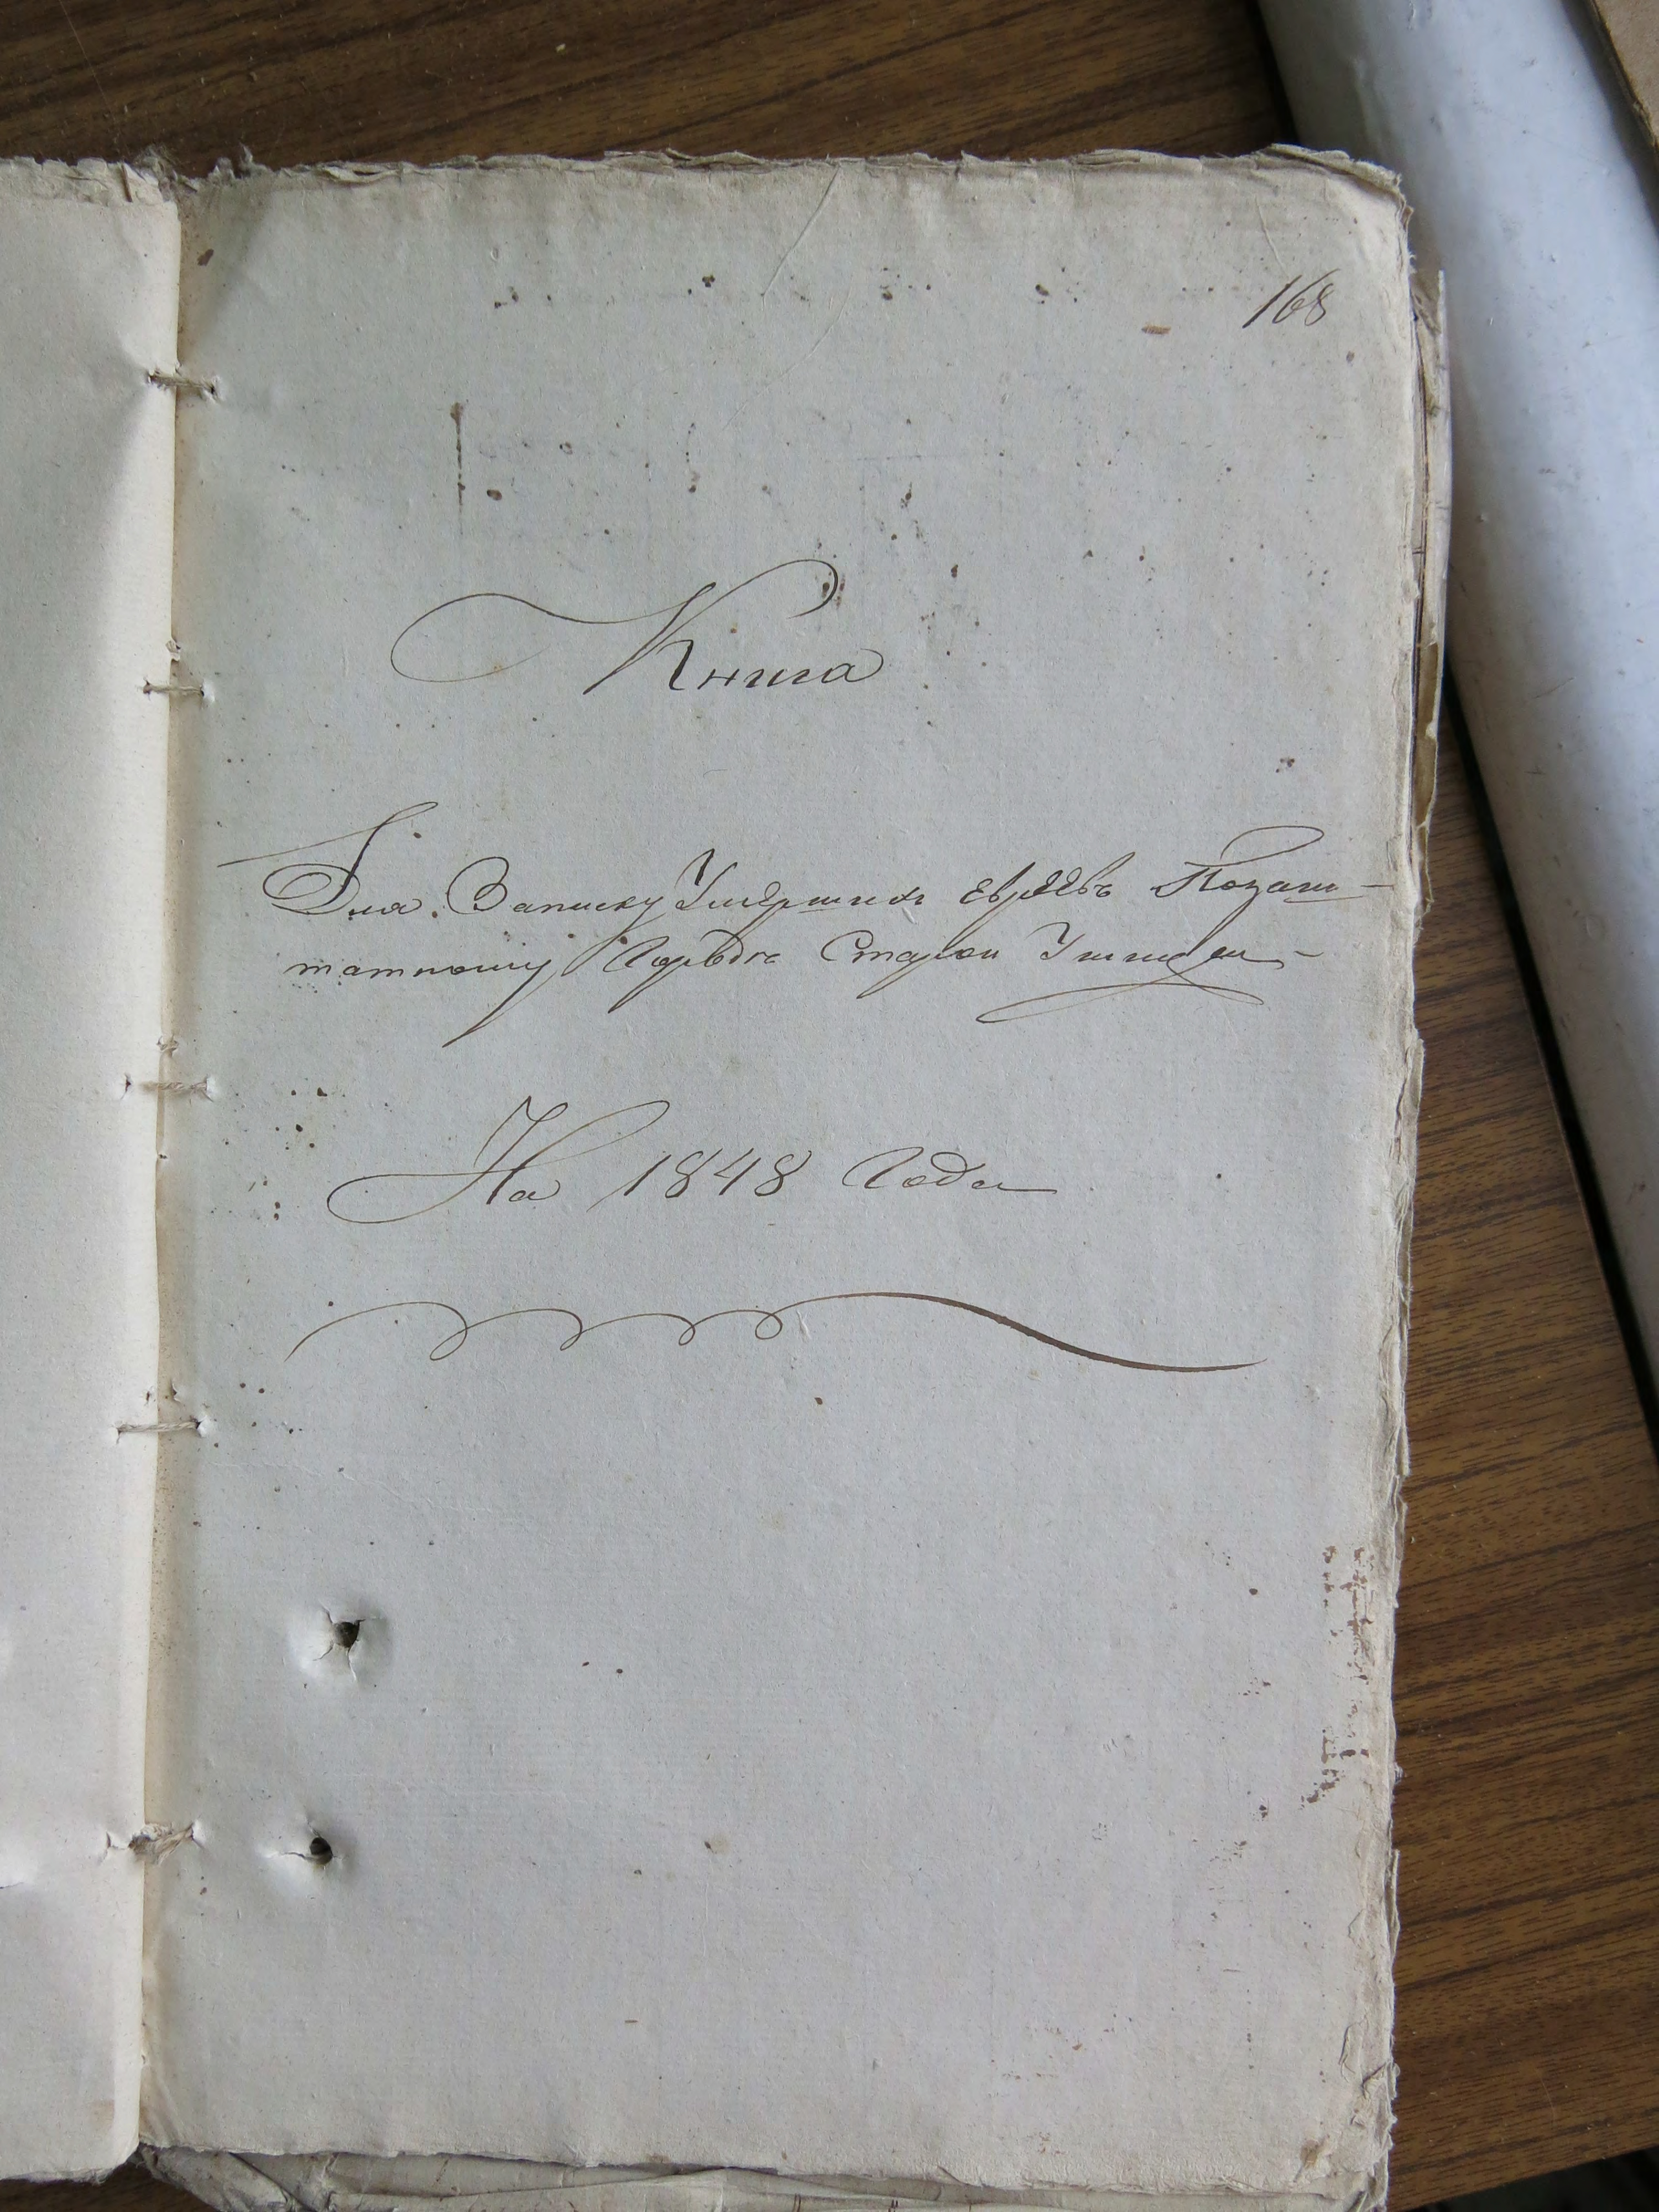 168
Книга
Для Записку Умершихъ евреевъ Позаш-
татному Городъ Старои Ушицы
На 1848 Года